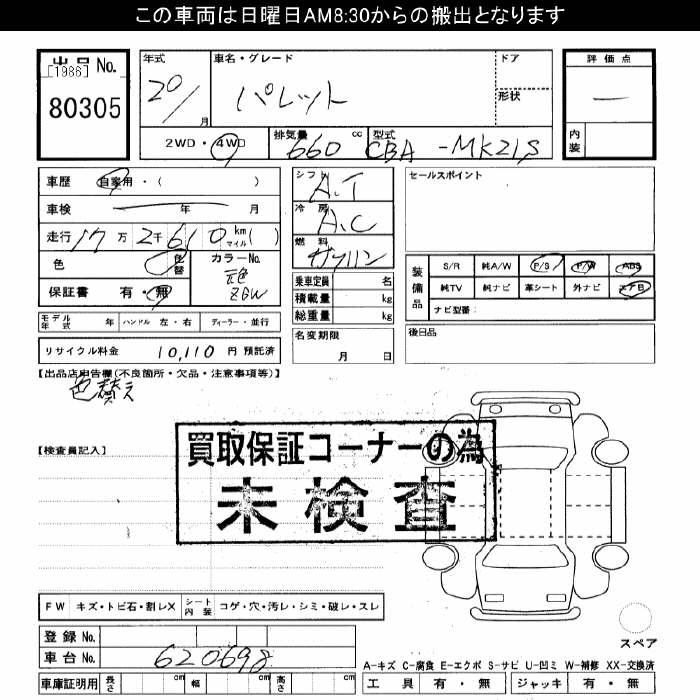 この車両は日曜日AM8:30からの搬出となります
出品 No.
[1986]
80305
年式
20/
月
車名・グレード
パレット
ドア
形状
評価点
―
内装
2WD・4WD
排気量
660
cc
型式
CBA-MK21S
車歴 自家用・( )
車検 年 月
走行 17万 2千 610 km マイル ( )
色 色替
カラーNo.
元色
ZGW
保証書 有・無
シフト
A.T
冷房
A.C
燃料
ガソリン
乗車定員 名
積載量 kg
総重量 kg
セールスポイント
装備品
S/R 純A/W P/S P/W ABS
純TV 純ナビ 革シート 外ナビ エアB
ナビ型番:
モデル年式 年 ハンドル 左・右 ディーラー・並行
名変期限
月 日
後日品
リサイクル料金 10,110 円 預託済
【出品店申告欄(不良箇所・欠品・注意事項等)】
色替え
【検査員記入】
買取保証コーナーの為
未検査
FW キズ・トビ石・割レX シート内装 コゲ・穴・汚レ・シミ・破レ・スレ
登録 No.
車台 No. 620698
車庫証明用 長さ cm 幅 cm 高さ cm
スペア
A-キズ C-腐食 E-エクボ S-サビ U-凹ミ W-補修 XX-交換済
工具 有・無 ジャッキ 有・無